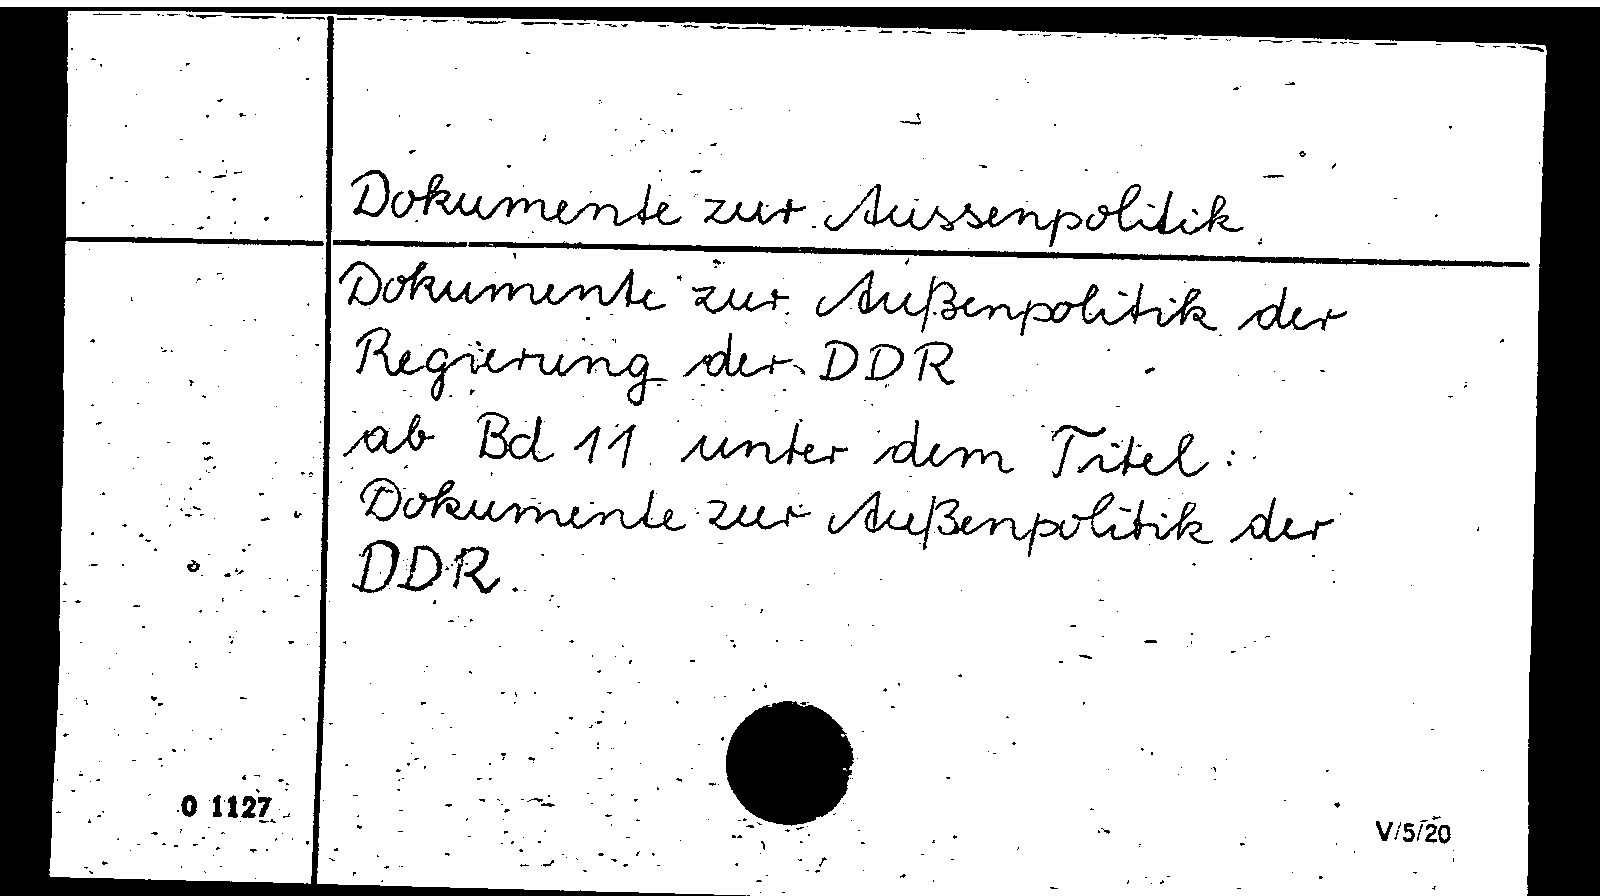 Dokumente zur Aussenpolitik
Dokumente zur Außenpolitik der
Regierung der DDR
ab Bd 11 unter dem Titel:
Dokumente zur Außenpolitik der
DDR.
O 1127
V/5/20